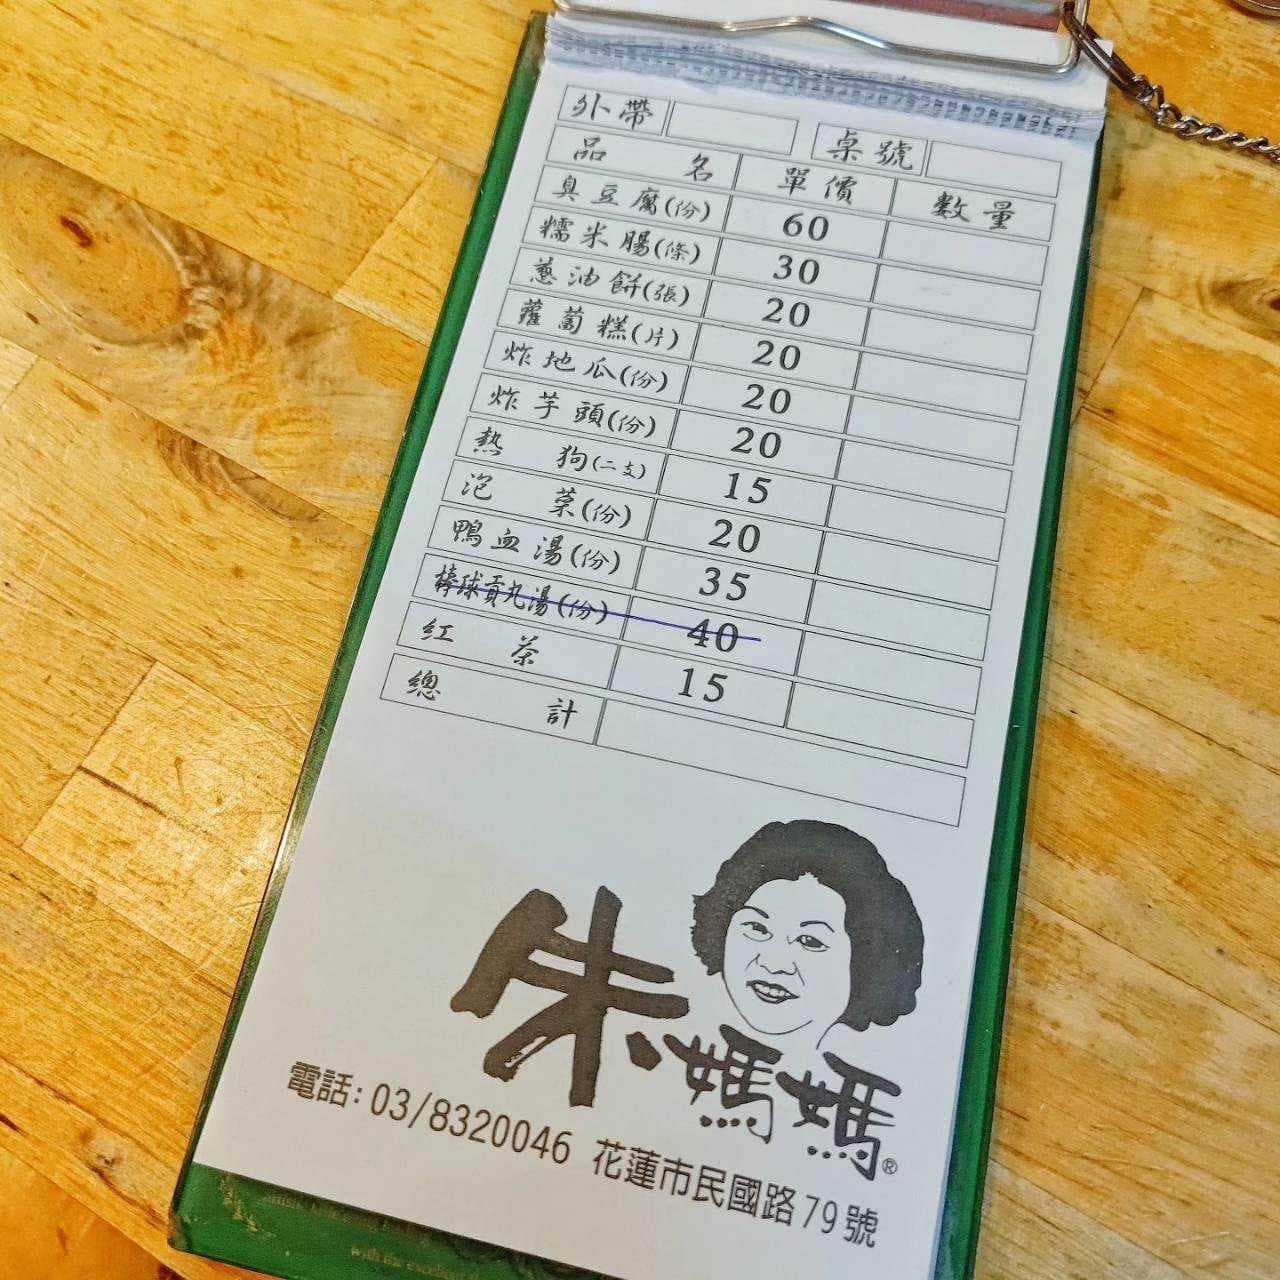 外帶 桌號
品名 單價 數量
臭豆腐(份) 60
糯米腸(條) 30
蔥油餅(張) 20
蘿蔔糕(片) 20
炸地瓜(份) 20
炸芋頭(份) 20
熱狗(二支) 15
泡菜(份) 20
鴨血湯(份) 35
棒球貢丸湯(份) 40
紅茶 15
總計
朱媽媽®
電話:03/8320046 花蓮市民國路79號